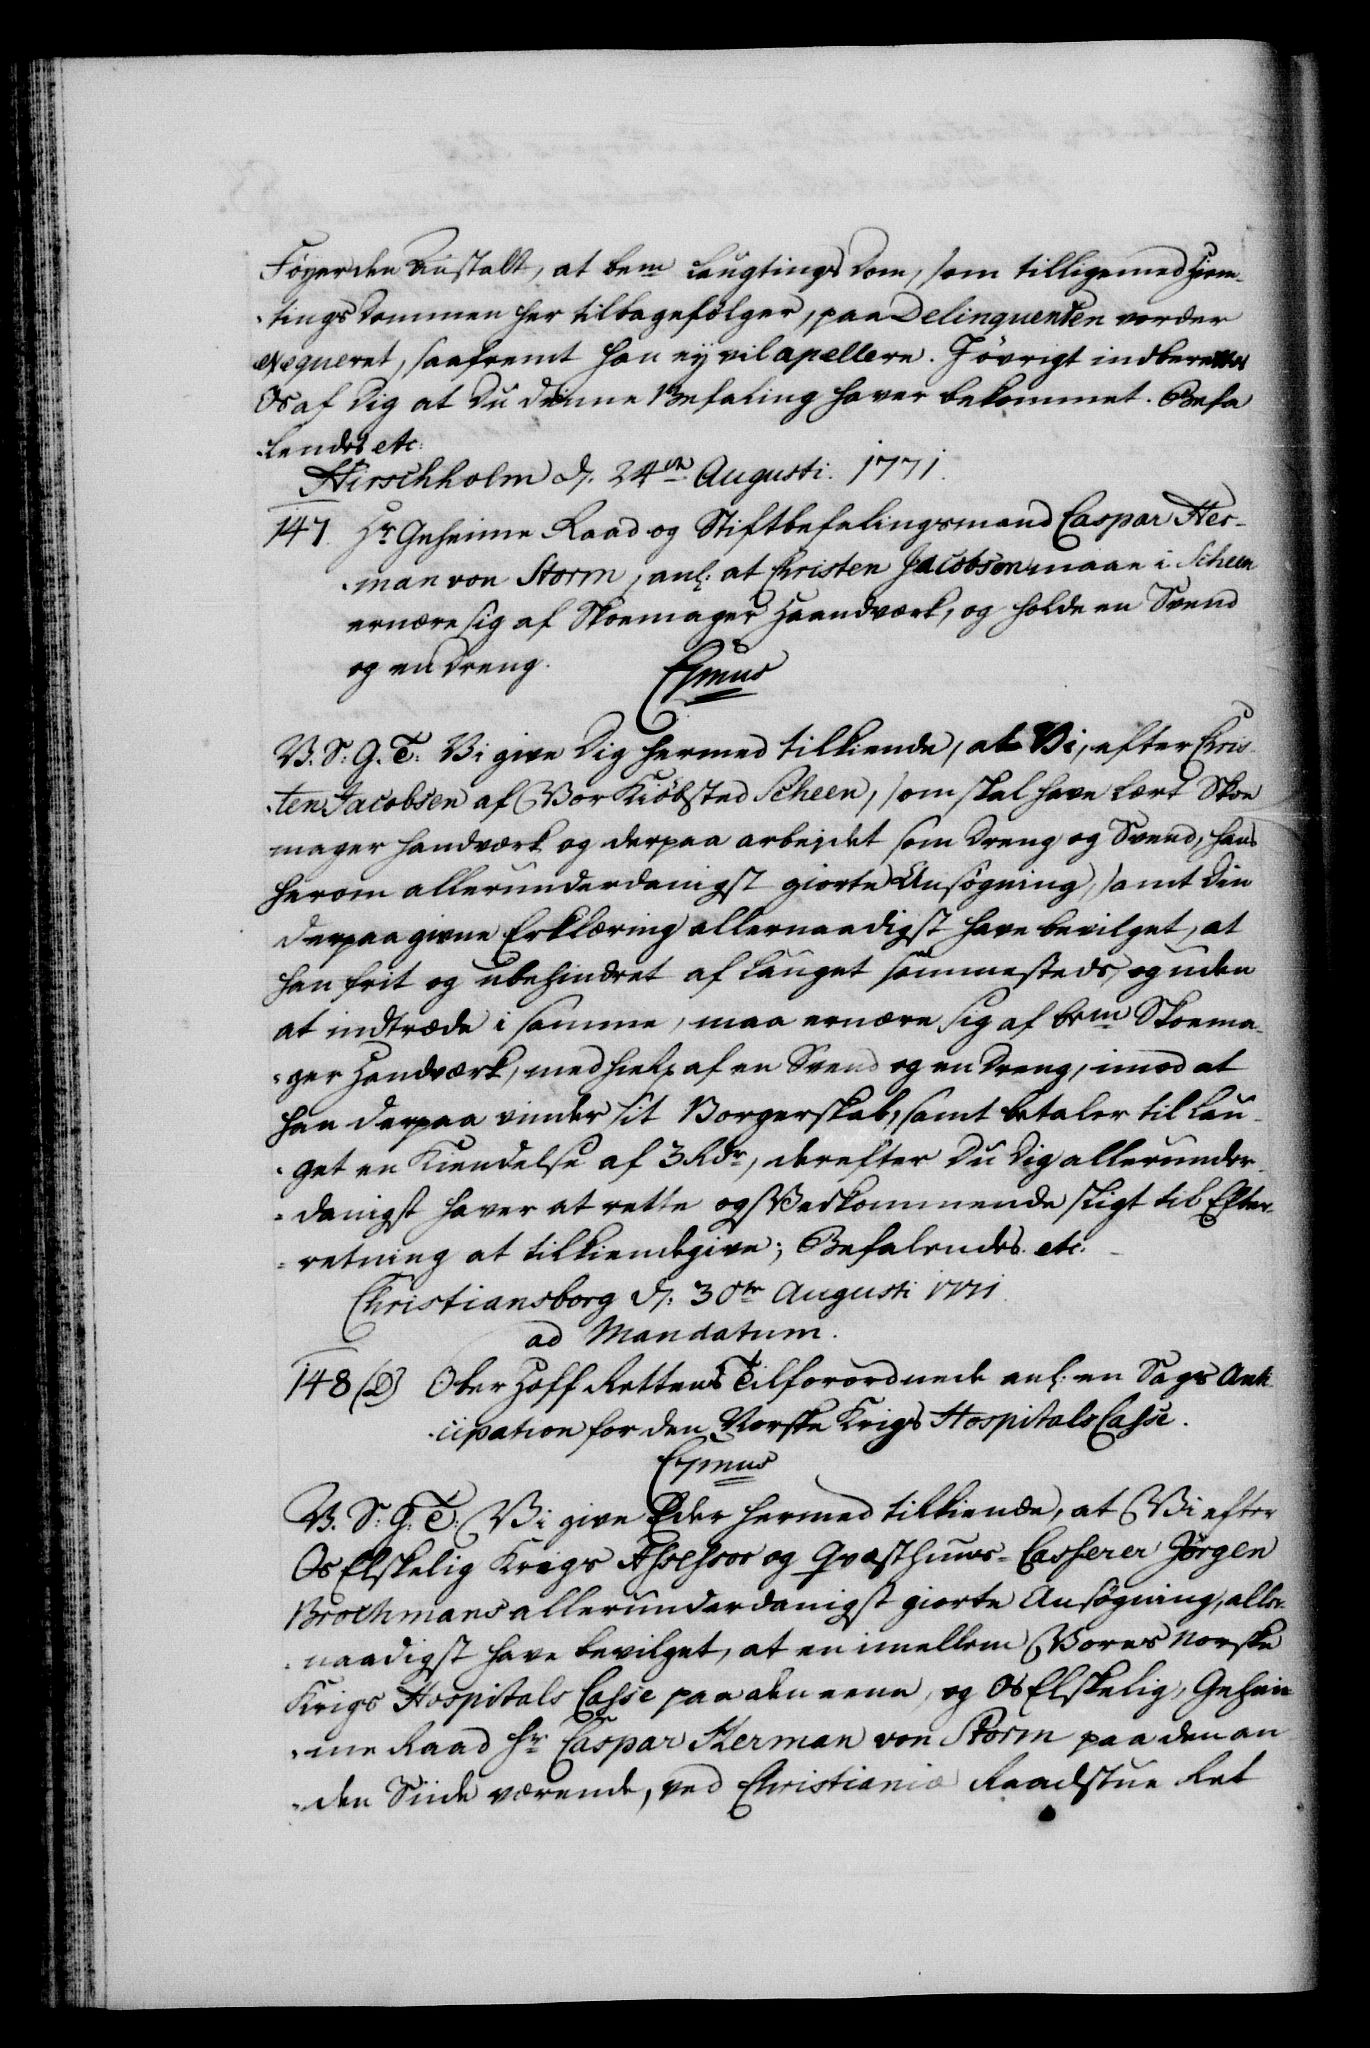 Føyer den Anstalt, at bem̅ Laugtings Dom, som tilligemed Hiem-
-tings Dommen her tilbagefølger, paa Delinquenten vorder
exeqveret, saafremt han ey vil apellere. I øvrigt indberettes
Os af Dig at Du denne Befaling haver bekommet. Befa
-lendes etc:
Hirschholm d. 24de Augusti. 1771.
147. Hr Geheime Raad og Stiftbefalingsmand Caspar Her-
-man von Storm, anl: at Christen Jacobsen maae i Scheen
ernære sig af Skoemager Haandværk, og holde en Svend
og en Dreng.
C7mus
V. S: G. T: Vi give Dig hermed tilkiende, at Vi, efter Chris
-ten Jacobsen af Vor Kiøbsted Scheen, som skal have lært Skoe
mager handværk og derpaa arbejdet som Dreng og Svend, hans
herom allerunderdanigst giorte Ansøgning, samt Din
derpaa givne Erklæring allernaadigst have bevilget, at
han frit og ubehindret af Lauget sammesteds, og uden
at indtræde i samme, maa ernære sig af bem̅ Skoema-
-ger Handværk, med hielp af en Svend og en Dreng, imod at
han derpaa vinder sit Borgerskab, samt betaler til Lau-
-get en Kiendelse af 3 Rdr, derefter Du Dig allerunder-
-danigst haver at rette og Vedkommende sligt til Efter-
-retning at tilkiendegive; Befalendes etc.
Christiansborg d: 30te Augusti 1771.
ad Mandatum.
148 (D) Ober Hoff Rettens Tilforordnede anl: en Sags Anti
-cipation for den Norske Krigs Hospitals Casse.
C7mus
V. S: G: T: Vi give Eder hermed tilkiende, at Vi efter
Os Elskelig Krigs Assessor og Qvæsthuus-Casserer Jørgen
Brochmans allerunderdanigst giorte Ansøgning, aller-
-naadigst have bevilget, at en imellem Vores Norske
Krigs Hospitals Casse paa den eene, og Os Elskelig, Gehei
-me Raad Hr Caspar Herman von Storm paa den an
-den Siide værende, ved Christiania Raadstue Ret